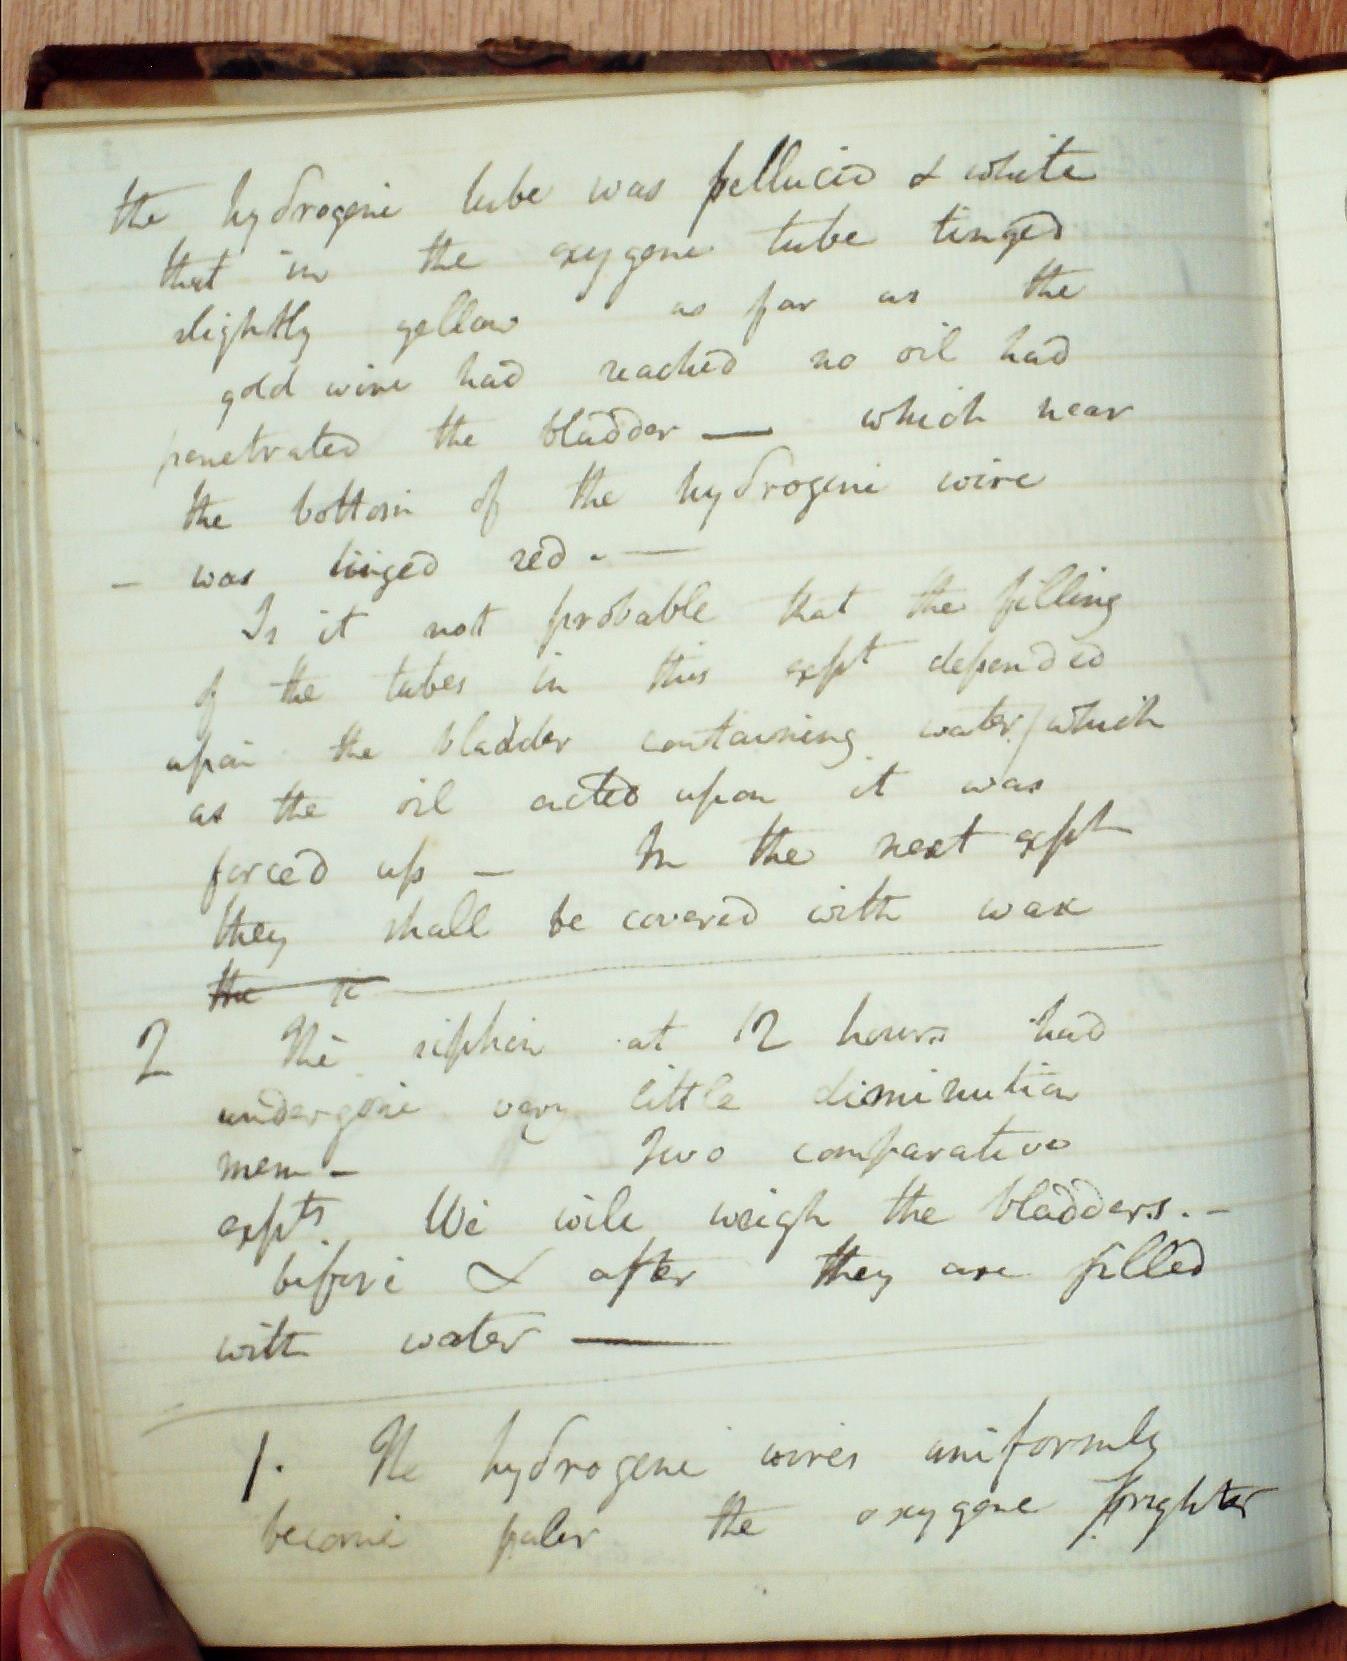 the hydrogene tube was pellucid & white
that in the oxygene tube tinged
slightly yellow as far as the
gold wire had reached no oil had
penetrated the bladder — which near
the bottom of the hydrogene wire
— was tinged red. —
Is it not probable that the filling
of the tubes in this expt depended
upon the bladder containing water / which
as the oil acted upon it was
forced up — In the next expt
they shall be covered with wax
the
2 The siphon at 12 hours had
undergone very little diminution
mem — Two comparative
expts. We will weigh the bladders. —
before & after they are filled
with water —
1. The hydrogene wires uniformly
become paler the oxygene brighter